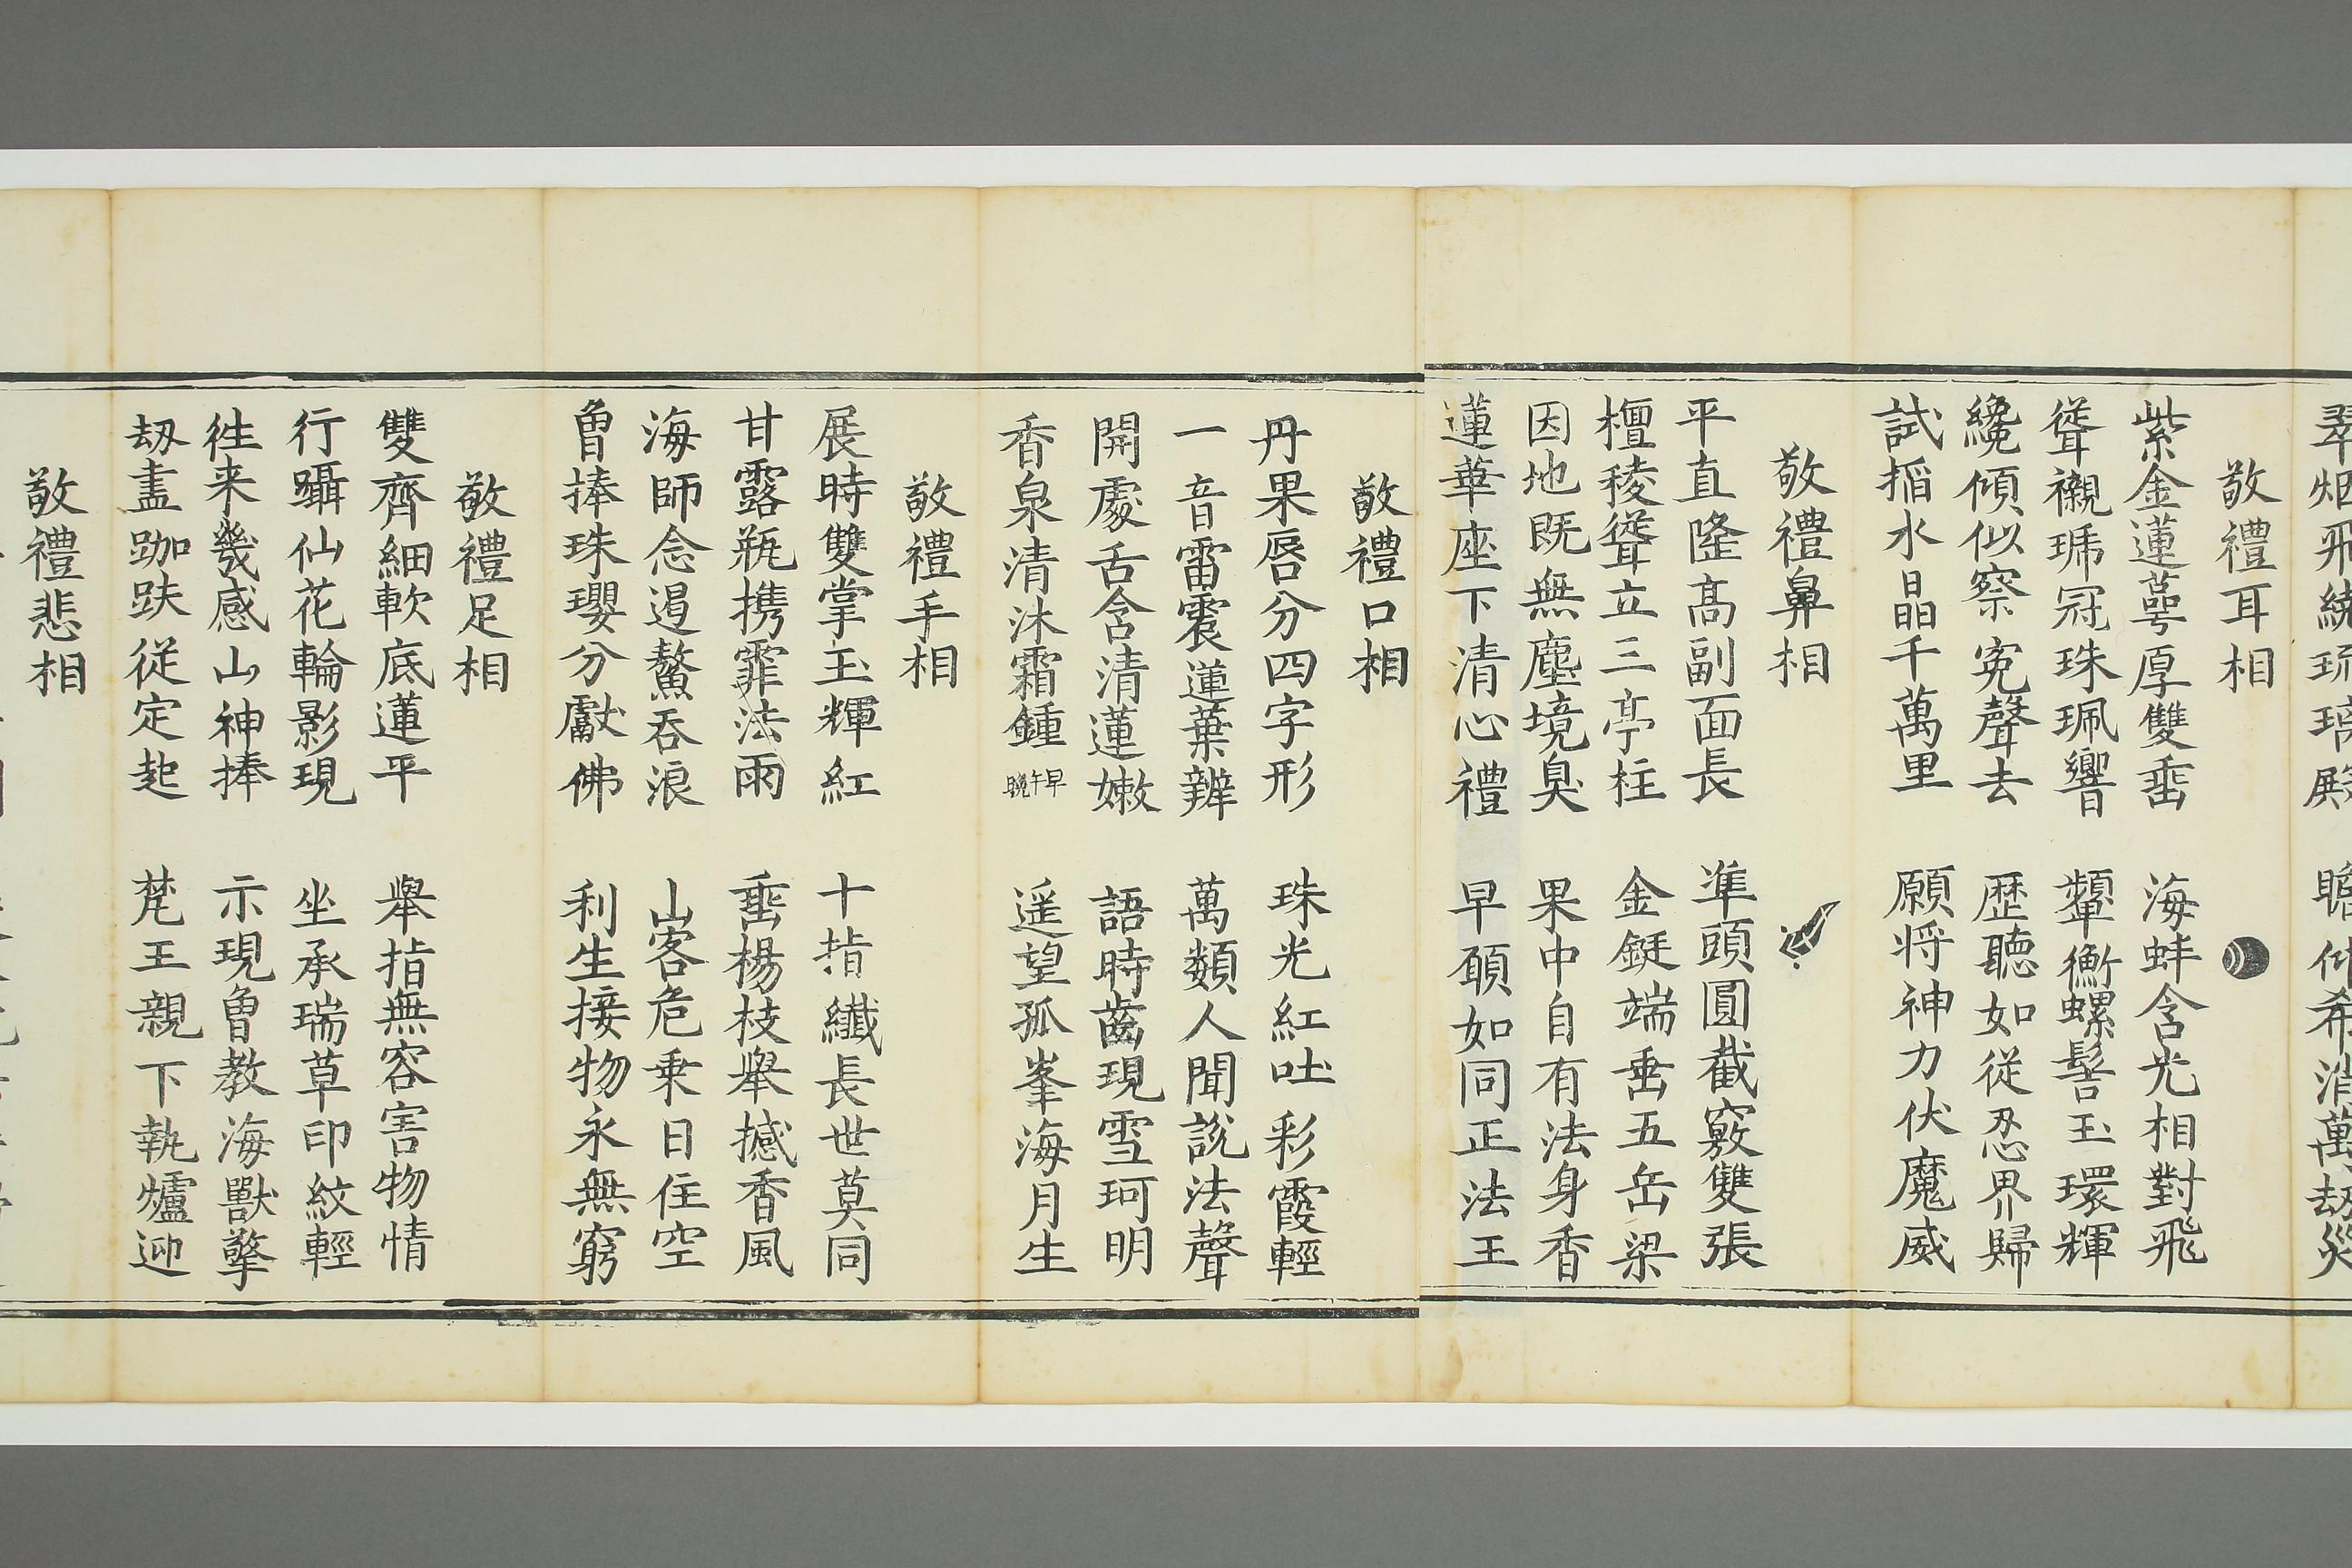 翠烟飛繞琉璃殿　瞻仰希消萬劫災
敬禮耳相
紫金蓮萼厚雙垂　海蚌含光相對飛
聳襯珠冠珠珮響　顰衡螺髻玉環輝
纔傾似察寃聲去　歷聽如從忍界歸
試搯水晶千萬里　願将神力伏魔威
敬禮鼻相
平直隆高副面長　準頭圓截竅雙張
檀稜聳立三亭柱　金鋌端垂五岳梁
因地既無塵境臭　果中自有法身香
蓮華座下清心禮　早願如同正法王
敬禮口相
丹果唇分四字形　珠光紅吐彩霞輕
一音雷震蓮葉辦　萬類人聞說法聲
開處舌含清蓮嫩　語時齒現雪珂明
香泉清沐霜鍾早午晩　遥望孤峯海月生
敬禮手相
展時雙掌玉輝紅　十指纖長世莫同
甘露瓶携霏法雨　垂楊枝舉撼香風
海師念遏鰲吞浪　山客危乗日住空
曾捧珠瓔分獻佛　利生接物永無窮
敬禮足相
雙齊細軟底蓮平　舉指無容害物情
行躡仙花輪影現　坐承瑞草印紋輕
徃来幾感山神捧　示現曾教海獸擎
劫盡跏趺從定起　梵王親下執爐迎
敬禮悲相